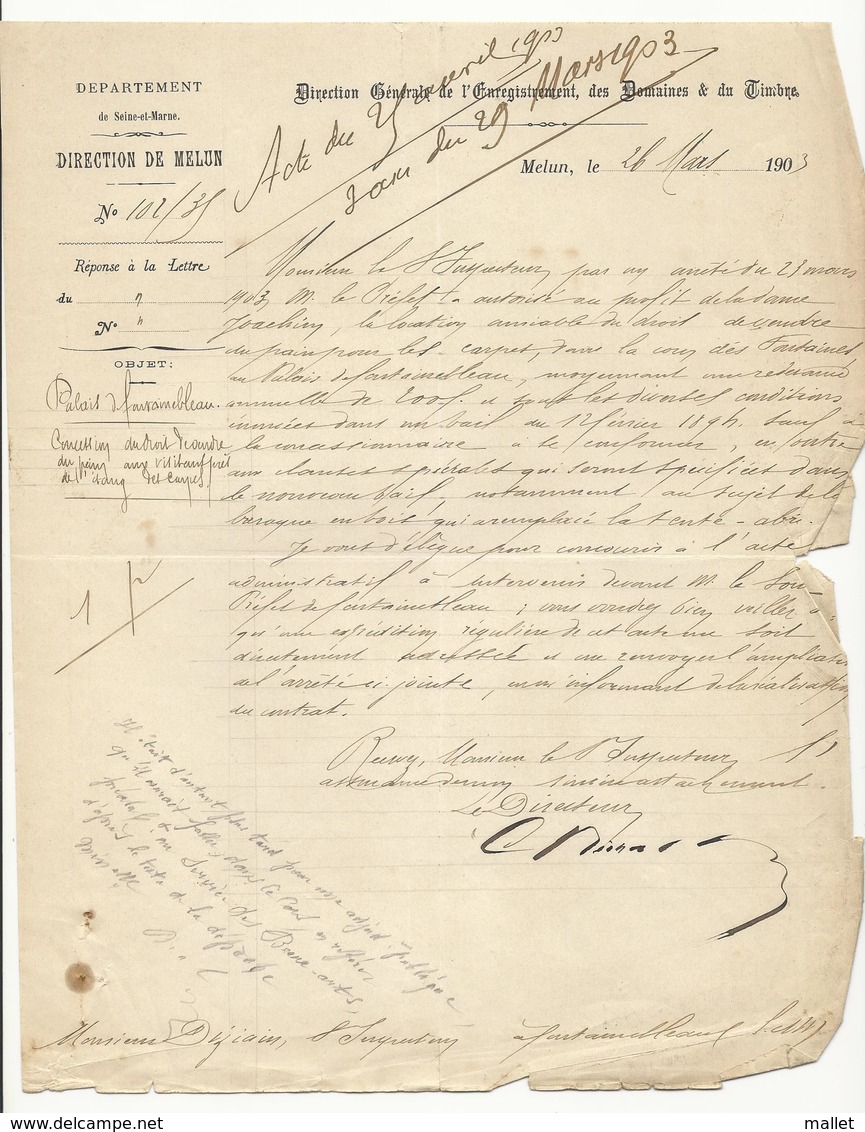 Acte du 25 avril 1903
Direction Générale de l'Enregistrement, des Domaines & du Timbre
du 29 Mars 1903
DEPARTEMENT
de Seine-et-Marne.
DIRECTION DE MELUN
Melun, le 26 Mars 1903
No 102/35
Réponse à la Lettre
du "
No "
OBJET:
Palais de fontainebleau.
Concession du droit de vendre
du pain aux visiteurs près
de l'étang des carpes.
Monsieur le S/Inspecteur, par un arrêté du 23 mars
1903, M. le Préfet a autorisé au profit de la dame
Joachim, la location amiable du droit de vendre
du pain pour les carpes, dans la cour des Fontaines
au Palais de fontainebleau, moyennant une redevance
annuelle de 200f. et sous les diverses conditions
énoncées dans un bail du 12 février 1894, sauf à
la concessionnaire à se conformer, en outre
aux clauses spéciales qui seront spécifiées dans
le nouveau bail, notamment au sujet de la
baraque en bois qui a remplacé la tente-abri.
Je vous délègue pour concourir à l'acte
administratif à intervenir devant M. le Sous
Préfet de fontainebleau; vous voudrez bien veiller à
qu'une expédition régulière de cet acte me soit
directement adressée et me renvoyer l'ampliation
de l'arrêté ci-jointe, en m'informant de la réalisation
du contrat.
1 p
Recevez, Monsieur le S/Inspecteur, l'
assurance de mon sincère attachement.
Le Directeur
Il était d'autant plus tard pour une adjud. publique
qu'il aurait fallu, dans ce cas, en référer
préalab.t au Service des Beaux-arts,
d'après le texte de la dépêche
Monsieur Déziain, S/Inspecteur à fontainebleau
delcampe.net
mallet